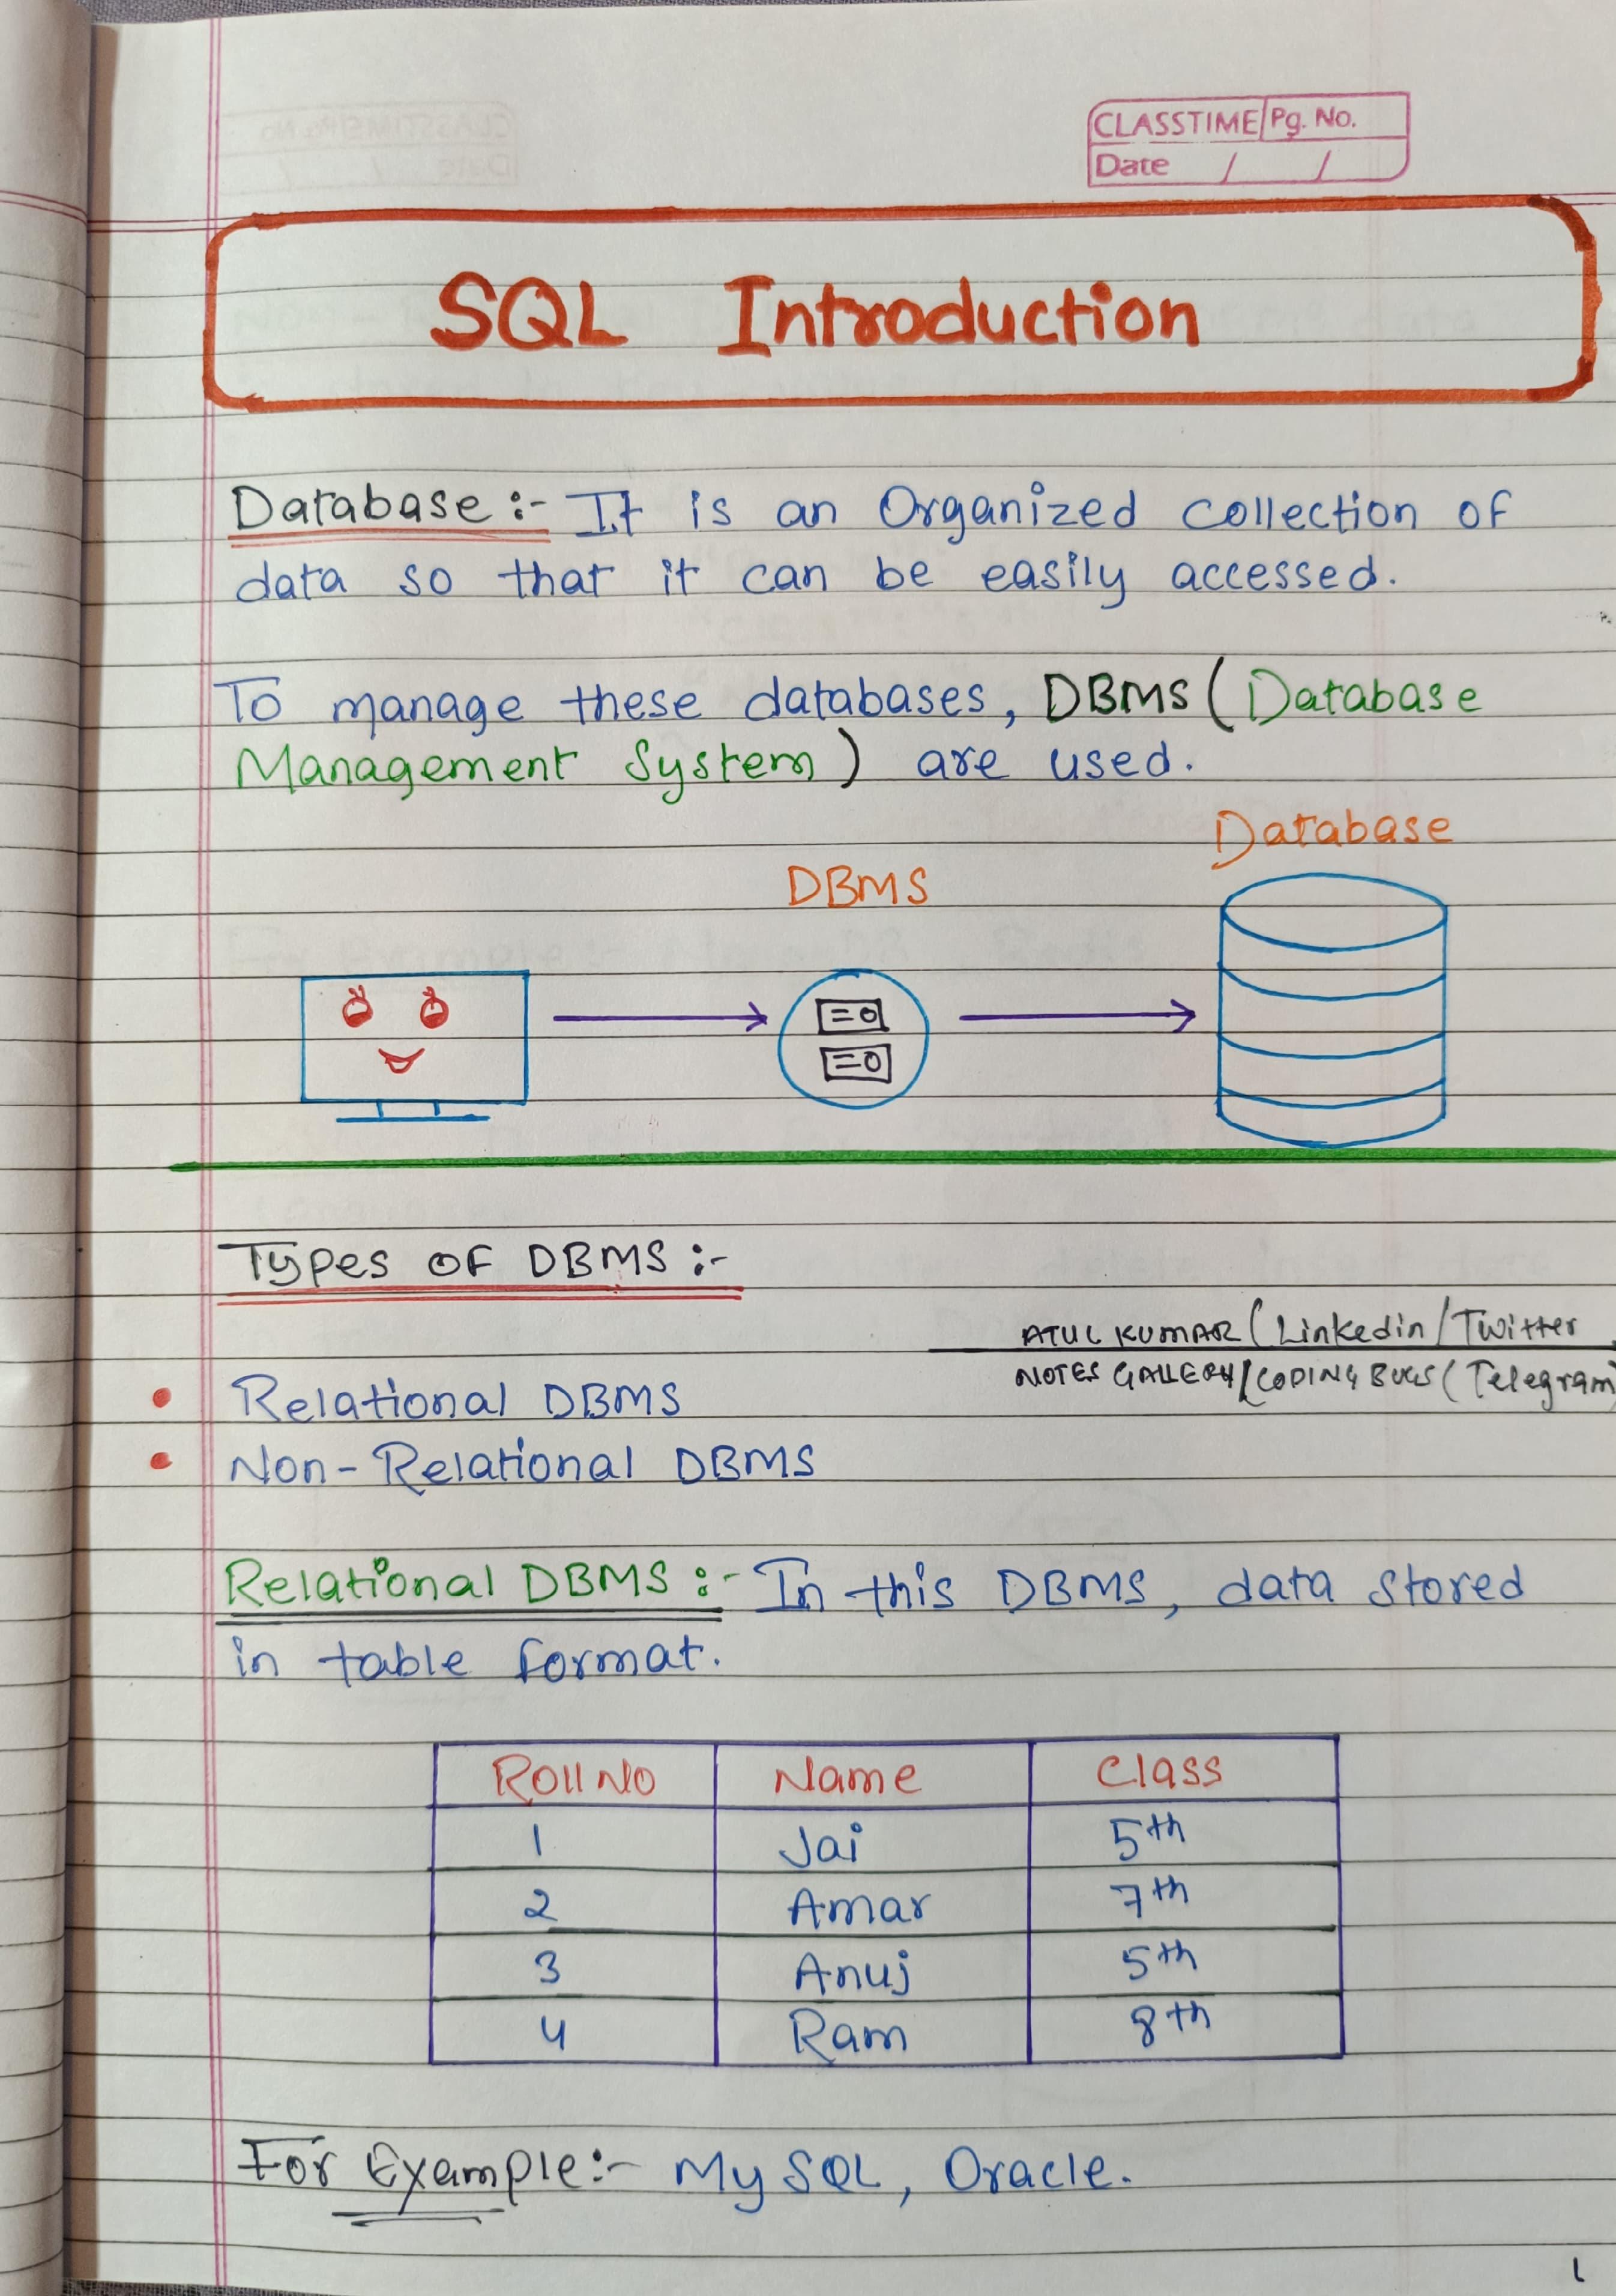 CLASSTIME Pg. No.
Date / /
SQL Introduction
Database :- It is an Organized collection of
data so that it can be easily accessed.
To manage these databases, DBMS (Database
Management System) are used.
Database
DBMS
Types OF DBMS :-
ATUL KUMAR (Linkedin/Twitter
NOTES GALLERY/CODING BUGS (Telegram)
• Relational DBMS
• Non-Relational DBMS
Relational DBMS :- In this DBMS, data stored
in table format.
Roll No Name Class
1 Jai 5th
2 Amar 7th
3 Anuj 5th
4 Ram 8th
For Example:- My SQL, Oracle.
1